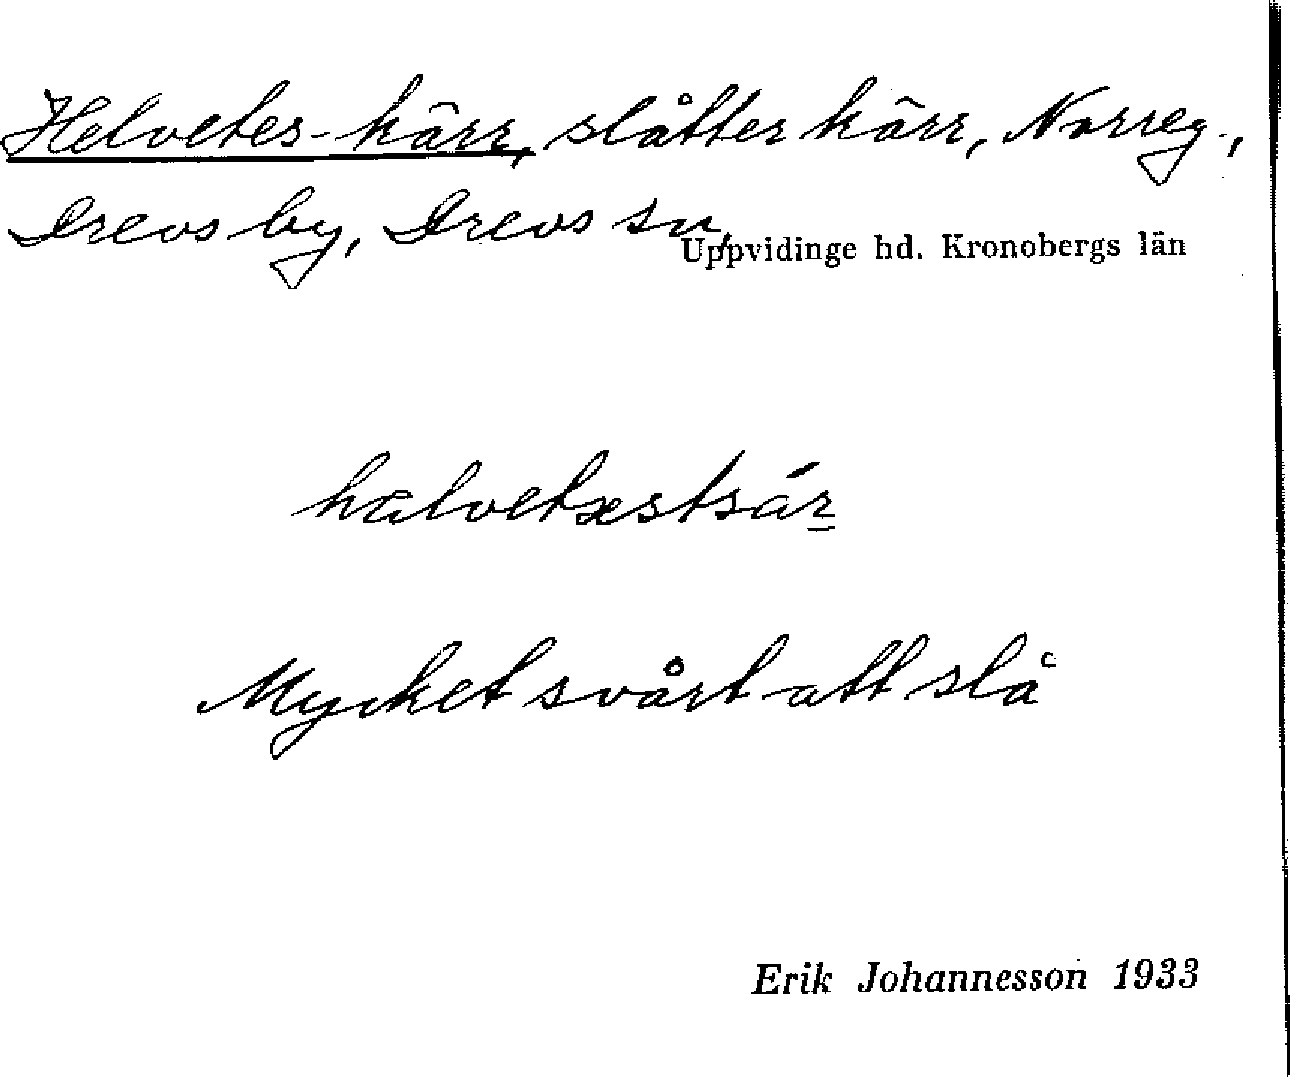 Helvetes-kärr, slåtterkärr, Norreg.,
Drevs by, Drevs sn,
Uppvidinge hd. Kronobergs län
Mycket svårt att slå
Erik Johannesson 1933